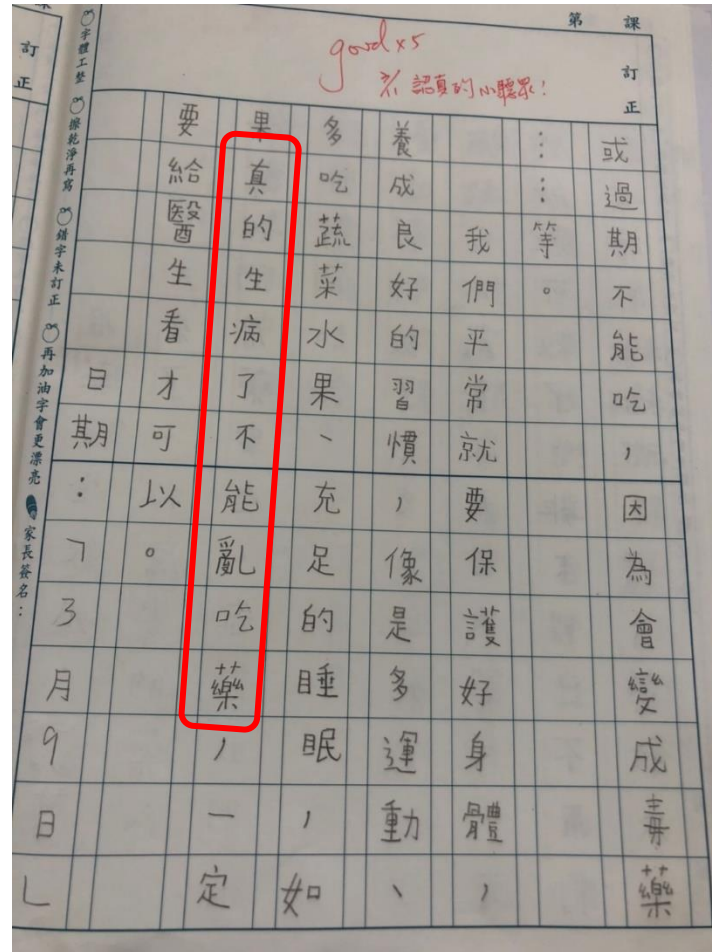 第 課 訂正
good x5
認真的小聽眾!
或過期不能吃,因為會變成毒藥
……等。
我們平常就要保護好身體,
養成良好的習慣,像是多運動、
多吃蔬菜水果、充足的睡眠,如
果真的生病了不能亂吃藥,一定
要給醫生看才可以。
日期:「3月9日」
字體工整 擦乾淨再寫 錯字未訂正 再加油字會更漂亮 家長簽名:
訂正